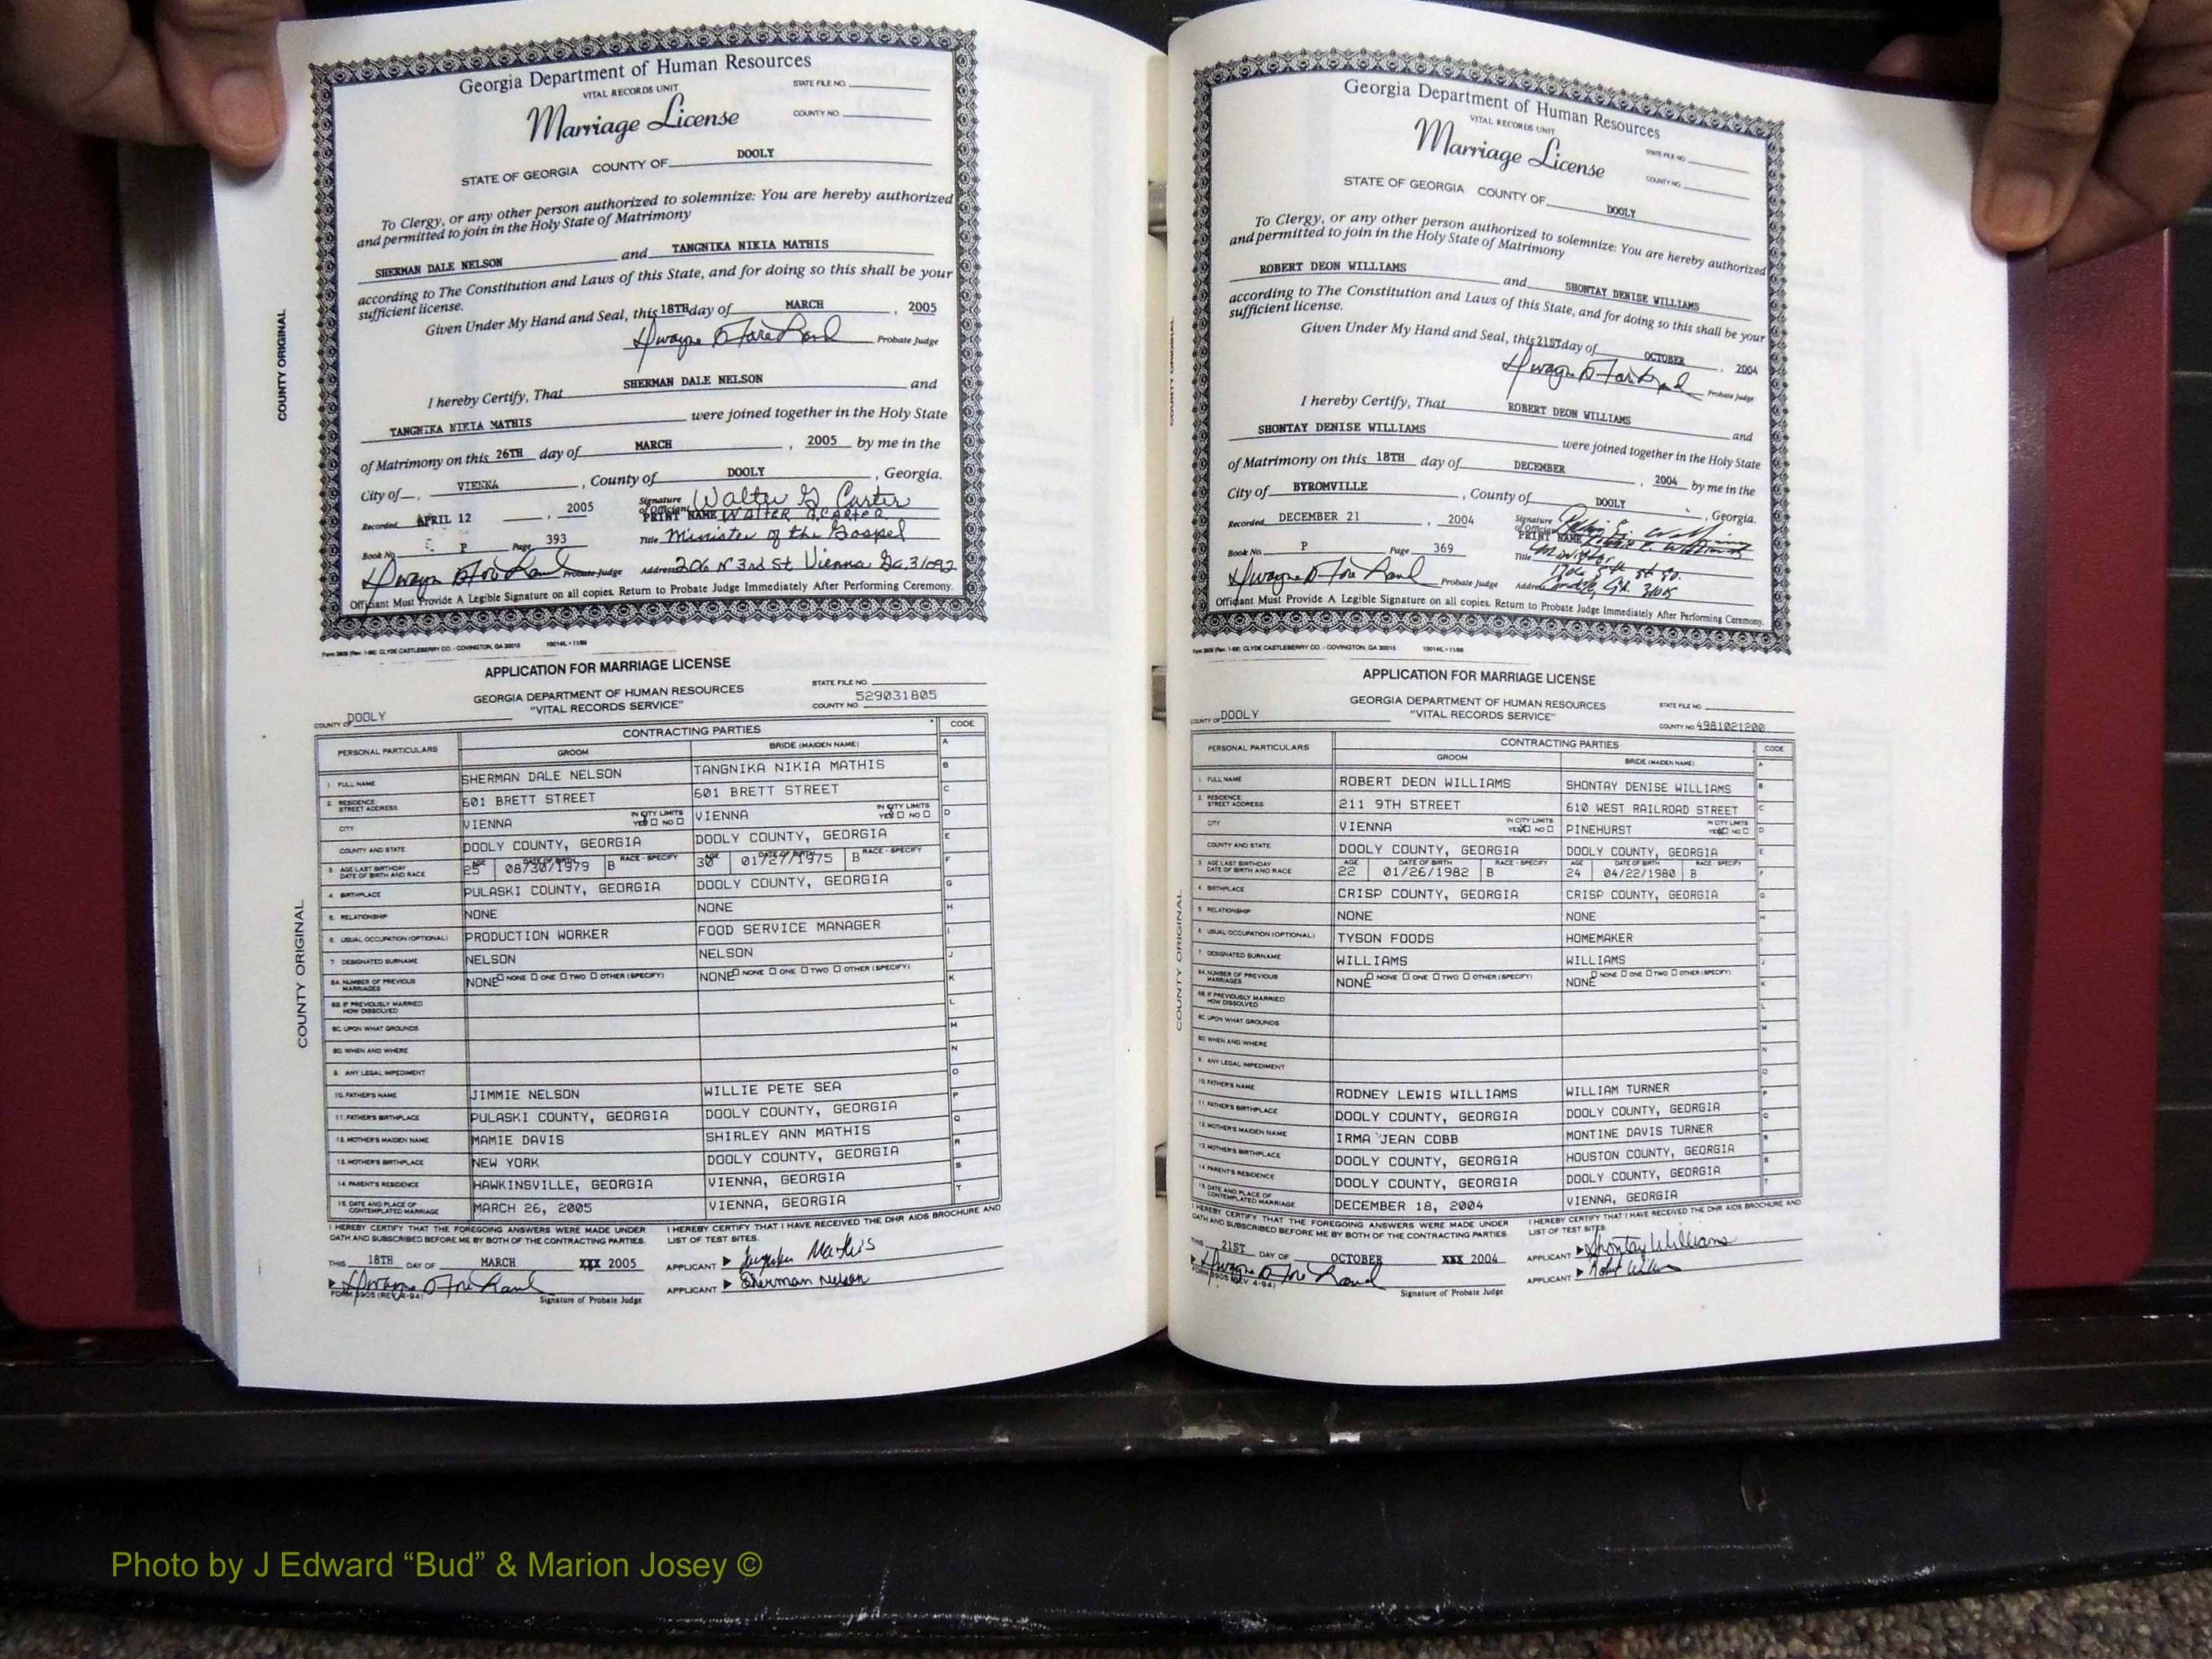 Georgia Department of Human Resources
VITAL RECORDS UNIT
STATE FILE NO.
Marriage License
COUNTY NO.
STATE OF GEORGIA COUNTY OF DOOLY
To Clergy, or any other person authorized to solemnize: You are hereby authorized
and permitted to join in the Holy State of Matrimony
SHERMAN DALE NELSON and TANGNIKA NIKIA MATHIS
according to The Constitution and Laws of this State, and for doing so this shall be your
sufficient license.
Given Under My Hand and Seal, this 18TH day of MARCH, 2005
Probate Judge
I hereby Certify, That SHERMAN DALE NELSON and
TANGNIKA NIKIA MATHIS were joined together in the Holy State
of Matrimony on this 26TH day of MARCH, 2005 by me in the
City of VIENNA, County of DOOLY, Georgia.
Recorded APRIL 12, 2005 Signature of Officiant Walter G Carter
PRINT NAME WALTER G. CARTER
Book No. P Page 393 Title Minister of the Gospel
Probate Judge Address 206 N 3rd St Vienna Ga. 31092
Officiant Must Provide A Legible Signature on all copies. Return to Probate Judge Immediately After Performing Ceremony.
COUNTY ORIGINAL
Form 3906 (Rev. 1-89) CLYDE CASTLEBERRY CO. - COVINGTON, GA 30015
APPLICATION FOR MARRIAGE LICENSE
GEORGIA DEPARTMENT OF HUMAN RESOURCES
"VITAL RECORDS SERVICE"
STATE FILE NO.
529031805
COUNTY NO.
COUNTY OF DOOLY
PERSONAL PARTICULARS CONTRACTING PARTIES CODE
GROOM BRIDE (MAIDEN NAME) A
1. FULL NAME SHERMAN DALE NELSON TANGNIKA NIKIA MATHIS B
2. RESIDENCE: STREET ADDRESS 601 BRETT STREET 601 BRETT STREET C
CITY VIENNA IN CITY LIMITS YES NO VIENNA IN CITY LIMITS YES NO D
COUNTY AND STATE DOOLY COUNTY, GEORGIA DOOLY COUNTY, GEORGIA E
3. AGE LAST BIRTHDAY DATE OF BIRTH AND RACE AGE 25 DATE OF BIRTH 08/30/1979 RACE - SPECIFY B AGE 30 DATE OF BIRTH 01/27/1975 RACE - SPECIFY B F
4. BIRTHPLACE PULASKI COUNTY, GEORGIA DOOLY COUNTY, GEORGIA G
5. RELATIONSHIP NONE NONE H
6. USUAL OCCUPATION (OPTIONAL) PRODUCTION WORKER FOOD SERVICE MANAGER I
7. DESIGNATED SURNAME NELSON NELSON J
8A. NUMBER OF PREVIOUS MARRIAGES NONE NONE ONE TWO OTHER (SPECIFY) NONE NONE ONE TWO OTHER (SPECIFY) K
8B. IF PREVIOUSLY MARRIED HOW DISSOLVED L
8C. UPON WHAT GROUNDS M
8D. WHEN AND WHERE N
9. ANY LEGAL IMPEDIMENT O
10. FATHER'S NAME JIMMIE NELSON WILLIE PETE SEA P
11. FATHER'S BIRTHPLACE PULASKI COUNTY, GEORGIA DOOLY COUNTY, GEORGIA Q
12. MOTHER'S MAIDEN NAME MAMIE DAVIS SHIRLEY ANN MATHIS R
13. MOTHER'S BIRTHPLACE NEW YORK DOOLY COUNTY, GEORGIA S
14. PARENT'S RESIDENCE HAWKINSVILLE, GEORGIA VIENNA, GEORGIA T
15. DATE AND PLACE OF CONTEMPLATED MARRIAGE MARCH 26, 2005 VIENNA, GEORGIA
I HEREBY CERTIFY THAT THE FOREGOING ANSWERS WERE MADE UNDER
OATH AND SUBSCRIBED BEFORE ME BY BOTH OF THE CONTRACTING PARTIES.
I HEREBY CERTIFY THAT I HAVE RECEIVED THE DHR AIDS BROCHURE AND
LIST OF TEST SITES.
THIS 18TH DAY OF MARCH XXX 2005 APPLICANT Mathis
APPLICANT Sherman Nelson
FORM 3905 (REV. 4-94) Signature of Probate Judge
COUNTY ORIGINAL
Georgia Department of Human Resources
VITAL RECORDS UNIT
STATE FILE NO.
Marriage License
COUNTY NO.
STATE OF GEORGIA COUNTY OF DOOLY
To Clergy, or any other person authorized to solemnize: You are hereby authorized
and permitted to join in the Holy State of Matrimony
ROBERT DEON WILLIAMS and SHONTAY DENISE WILLIAMS
according to The Constitution and Laws of this State, and for doing so this shall be your
sufficient license.
Given Under My Hand and Seal, this 21ST day of OCTOBER, 2004
Probate Judge
I hereby Certify, That ROBERT DEON WILLIAMS and
SHONTAY DENISE WILLIAMS were joined together in the Holy State
of Matrimony on this 18TH day of DECEMBER, 2004 by me in the
City of BYROMVILLE, County of DOOLY, Georgia.
Recorded DECEMBER 21, 2004 Signature of Officiant
PRINT NAME
Book No. P Page 369 Title
Probate Judge Address
Officiant Must Provide A Legible Signature on all copies. Return to Probate Judge Immediately After Performing Ceremony.
COUNTY ORIGINAL
Form 3906 (Rev. 1-89) CLYDE CASTLEBERRY CO. - COVINGTON, GA 30015
APPLICATION FOR MARRIAGE LICENSE
GEORGIA DEPARTMENT OF HUMAN RESOURCES
"VITAL RECORDS SERVICE"
STATE FILE NO.
COUNTY NO. 4981021200
COUNTY OF DOOLY
PERSONAL PARTICULARS CONTRACTING PARTIES CODE
GROOM BRIDE (MAIDEN NAME) A
1. FULL NAME ROBERT DEON WILLIAMS SHONTAY DENISE WILLIAMS B
2. RESIDENCE: STREET ADDRESS 211 9TH STREET 610 WEST RAILROAD STREET C
CITY VIENNA IN CITY LIMITS YES NO PINEHURST IN CITY LIMITS YES NO D
COUNTY AND STATE DOOLY COUNTY, GEORGIA DOOLY COUNTY, GEORGIA E
3. AGE LAST BIRTHDAY DATE OF BIRTH AND RACE AGE 22 DATE OF BIRTH 01/26/1982 RACE - SPECIFY B AGE 24 DATE OF BIRTH 04/22/1980 RACE - SPECIFY B F
4. BIRTHPLACE CRISP COUNTY, GEORGIA CRISP COUNTY, GEORGIA G
5. RELATIONSHIP NONE NONE H
6. USUAL OCCUPATION (OPTIONAL) TYSON FOODS HOMEMAKER I
7. DESIGNATED SURNAME WILLIAMS WILLIAMS J
8A. NUMBER OF PREVIOUS MARRIAGES NONE NONE ONE TWO OTHER (SPECIFY) NONE NONE ONE TWO OTHER (SPECIFY) K
8B. IF PREVIOUSLY MARRIED HOW DISSOLVED L
8C. UPON WHAT GROUNDS M
8D. WHEN AND WHERE N
9. ANY LEGAL IMPEDIMENT O
10. FATHER'S NAME RODNEY LEWIS WILLIAMS WILLIAM TURNER P
11. FATHER'S BIRTHPLACE DOOLY COUNTY, GEORGIA DOOLY COUNTY, GEORGIA Q
12. MOTHER'S MAIDEN NAME IRMA JEAN COBB MONTINE DAVIS TURNER R
13. MOTHER'S BIRTHPLACE DOOLY COUNTY, GEORGIA HOUSTON COUNTY, GEORGIA S
14. PARENT'S RESIDENCE DOOLY COUNTY, GEORGIA DOOLY COUNTY, GEORGIA T
15. DATE AND PLACE OF CONTEMPLATED MARRIAGE DECEMBER 18, 2004 VIENNA, GEORGIA
I HEREBY CERTIFY THAT THE FOREGOING ANSWERS WERE MADE UNDER
OATH AND SUBSCRIBED BEFORE ME BY BOTH OF THE CONTRACTING PARTIES.
I HEREBY CERTIFY THAT I HAVE RECEIVED THE DHR AIDS BROCHURE AND
LIST OF TEST SITES.
THIS 21ST DAY OF OCTOBER XXX 2004 APPLICANT Shontay Williams
APPLICANT
FORM 3905 (REV. 4-94) Signature of Probate Judge
COUNTY ORIGINAL
Photo by J Edward “Bud” & Marion Josey ©